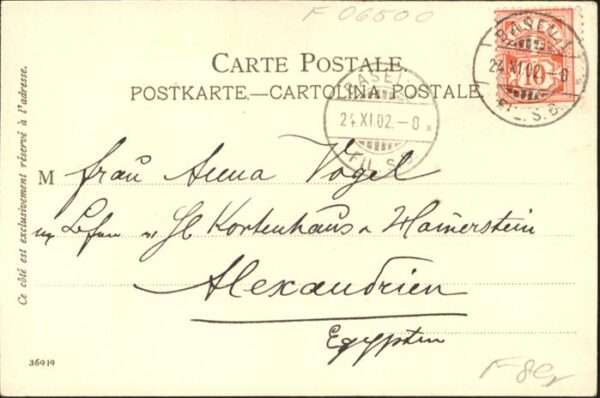 F 06500
CARTE POSTALE.
POSTKARTE.—CARTOLINA POSTALE
BASEL 1
24.XI.02.–8
FIL. S.B.
10
BASEL 1
24.XI.02.–8
FIL. S.B.
Ce côté est exclusivement réservé à l'adresse.
M Frau Anna Vogel
Kortenhaus Hamerstein
Alexandrien
Egypten
36919